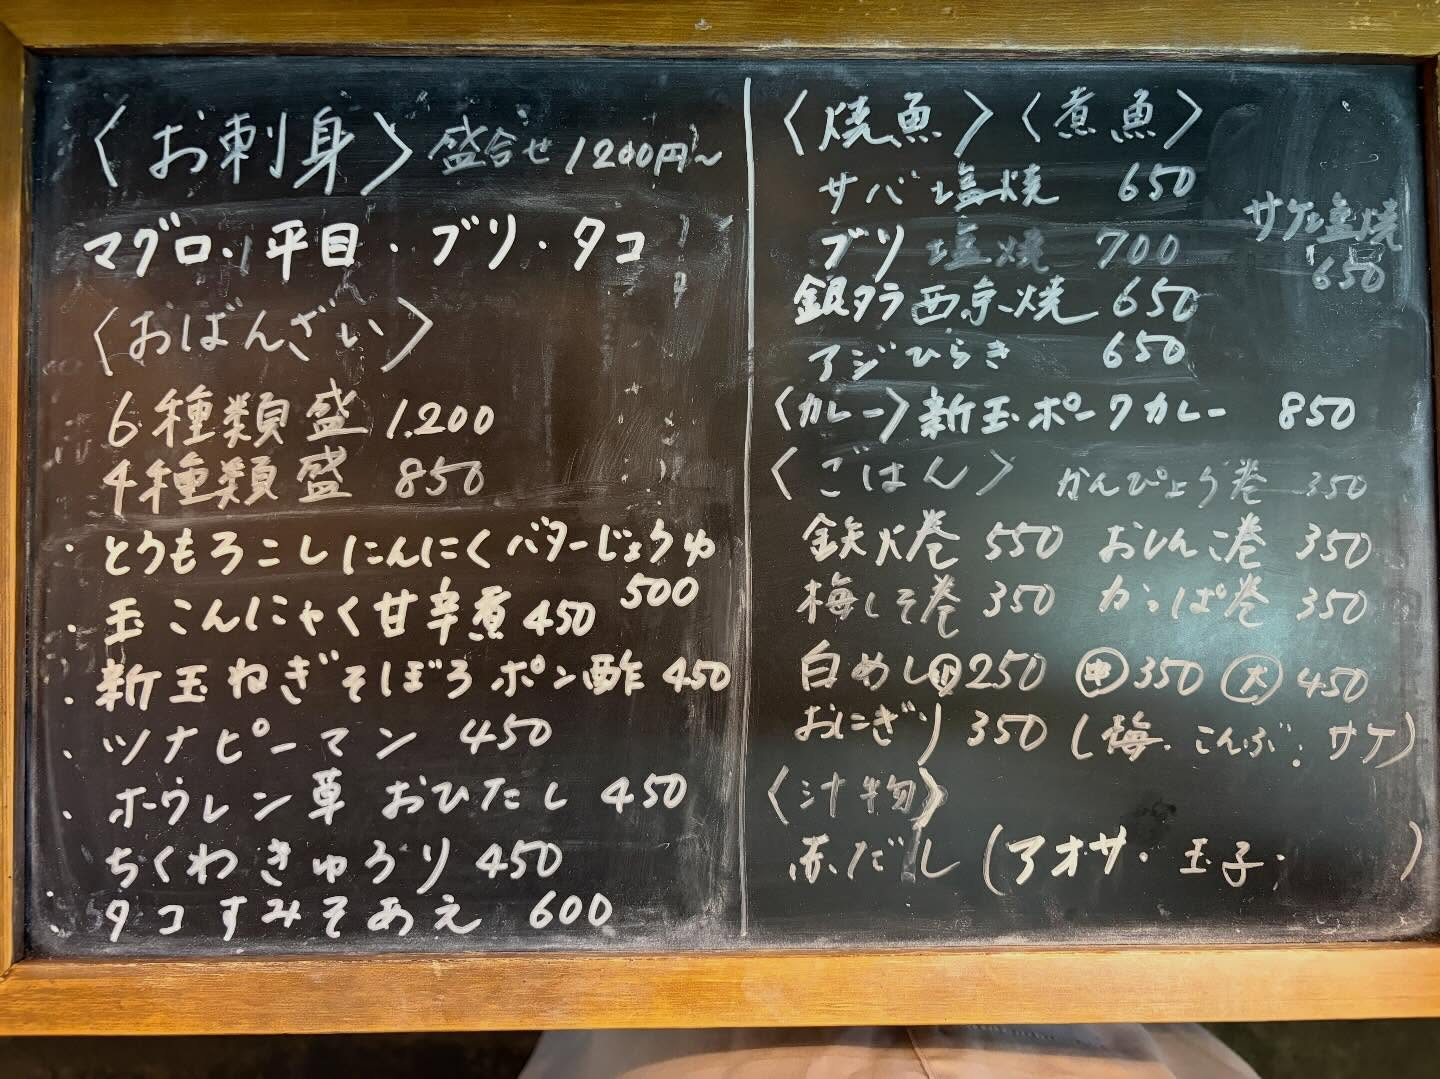 〈お刺身〉盛合せ 1200円～
マグロ・平目・ブリ・タコ
〈おばんざい〉
6種類盛 1.200
4種類盛 850
・とうもろこしにんにくバターじょうゆ
500
・玉こんにゃく甘辛煮 450
・新玉ねぎそぼろポン酢 450
・ツナピーマン 450
・ホウレン草おひたし 450
ちくわきゅうり 450
・タコすみそあえ 600
〈焼魚〉〈煮魚〉
サバ塩焼 650
サケ塩焼
650
ブリ塩焼 700
銀タラ西京焼 650
アジひらき 650
〈カレー〉新玉ポークカレー 850
〈ごはん〉 かんぴょう巻 350
鉄火巻 550 おしんこ巻 350
梅しそ巻 350 かっぱ巻 350
白めし 小 250 中 350 大 450
おにぎり 350 (梅・こんぶ・サケ)
〈汁物〉
赤だし (アオサ・玉子・ )